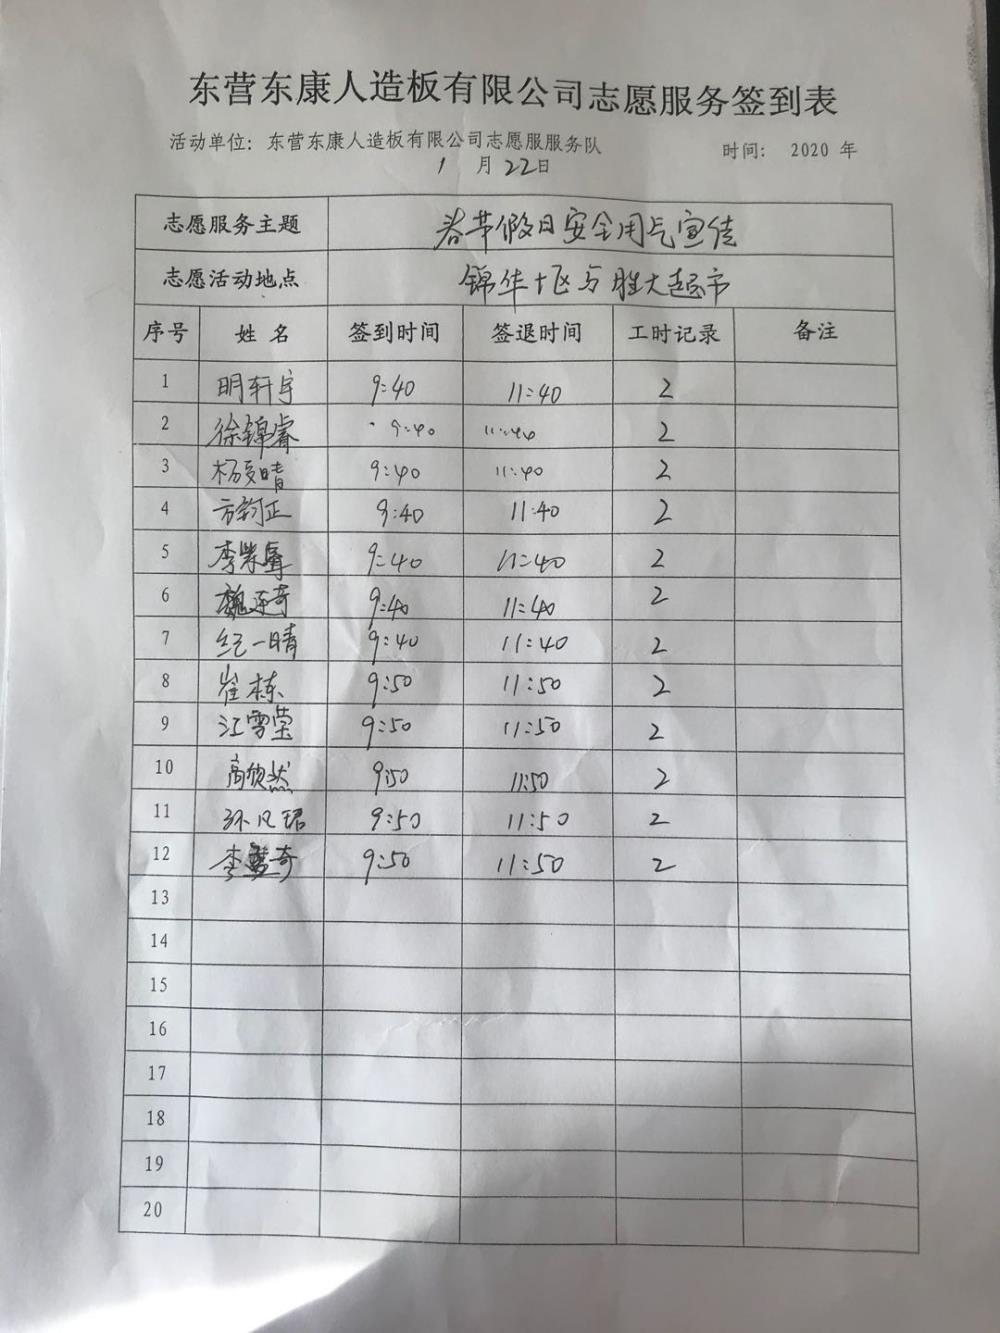 东营东康人造板有限公司志愿服务签到表
活动单位：东营东康人造板有限公司志愿服服务队 时间： 2020 年
1 月 22日
志愿服务主题 春节假日安全用气宣传
志愿活动地点 锦华十区与胜大超市
序号 姓 名 签到时间 签退时间 工时记录 备注
1 明轩宇 9:40 11:40 2
2 徐锦睿 9:40 11:40 2
3 杨晴 9:40 11:40 2
4 方钧正 9:40 11:40 2
5 李 9:40 11:40 2
6 魏奇 9:40 11:40 2
7 纪一晴 9:40 11:40 2
8 崔栋 9:50 11:50 2
9 江雪莹 9:50 11:50 2
10 高欣然 9:50 11:50 2
11 孙凡珺 9:50 11:50 2
12 李奇 9:50 11:50 2
13
14
15
16
17
18
19
20